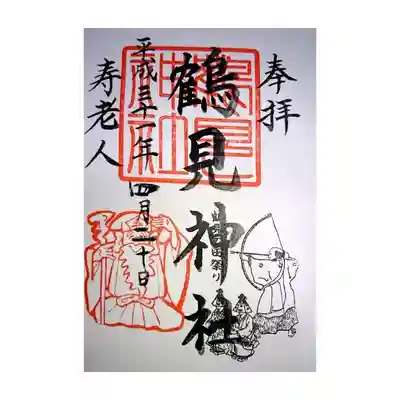 奉拝
鶴見神社
平成三十一年四月二十日
寿老人